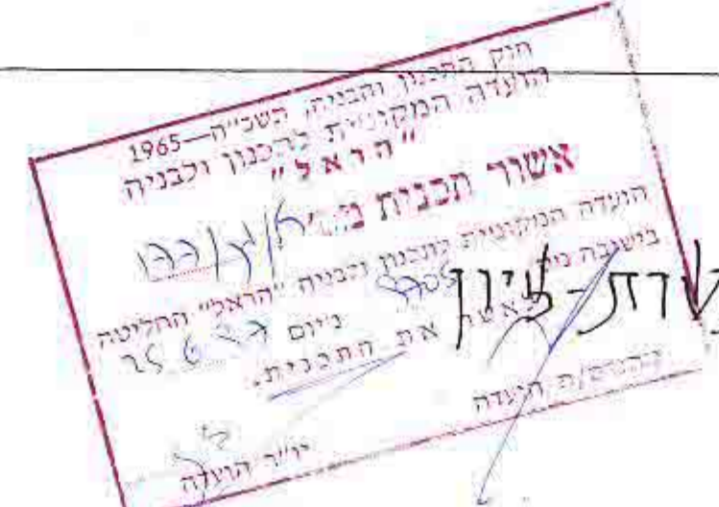 חוק התכנון והבניה, תשכ"ה—1965
הועדה המקומית לתכנון ולבניה
"הראל"
אשור תכנית מס'
הועדה המקומית לתכנון ולבניה "הראל" החליטה
בישיבה מס' ביום 25.6.97
לאשר את התכנית.
יו"ר הועדה
מהנדס/ת הועדה